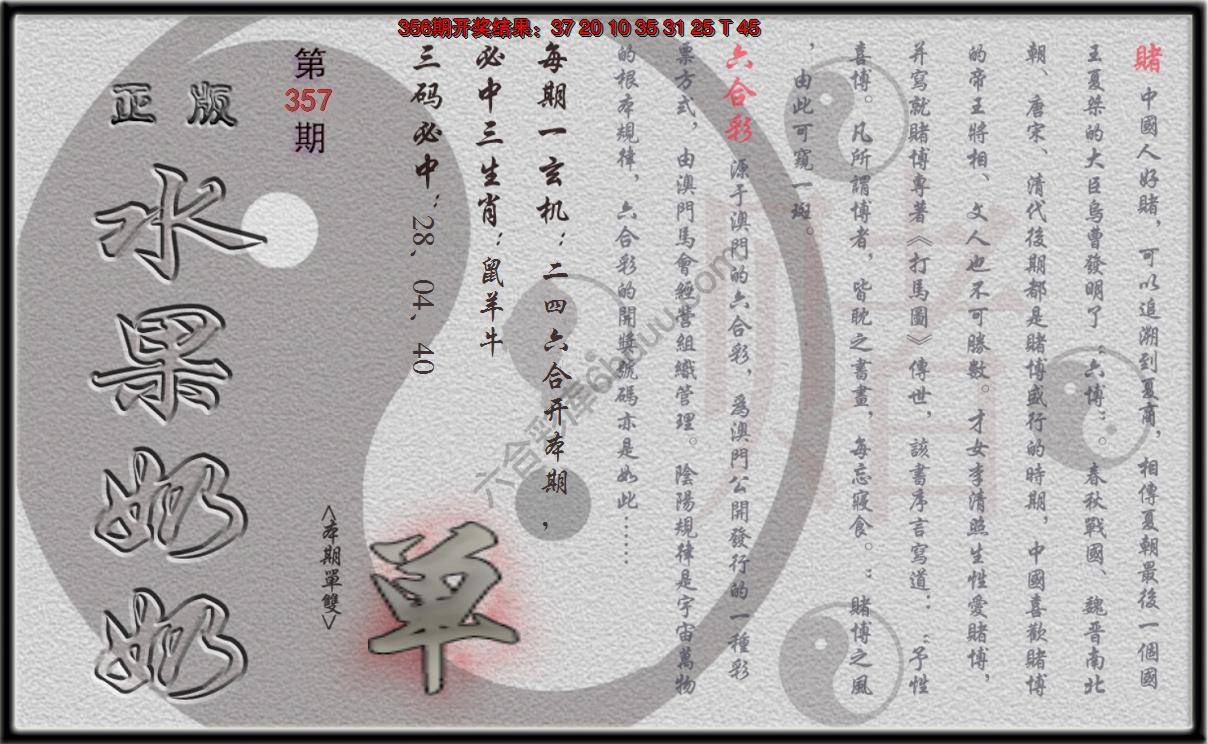 356期开奖结果：37 20 10 35 31 25 T 45
賭 中國人好賭，可以追溯到夏商，相傳夏朝最後一個國
王夏桀的大臣烏曹發明了“六博”。春秋戰國、魏晉南北
朝、唐宋、清代後期都是賭博盛行的時期，中國喜歡賭博
的帝王將相、文人也不可勝數。才女李清照生性愛賭博，
并寫就賭博專著《打馬圖》傳世，該書序言寫道：“予性
喜博。凡所謂博者，皆耽之晝畫，每忘寢食。：賭博之風
，由此可窺一斑。
六合彩 源于澳門的六合彩，為澳門公開發行的一種彩
票方式，由澳門馬會經營組織管理。陰陽規律是宇宙萬物
的根本規律，六合彩的開獎號碼亦是如此……
每期一玄机：二四六合开本期，
必中三生肖：鼠羊牛
三码必中：28、04、40
單
<本期單雙>
第
357
期
正版
水果奶奶
賭
六合彩库6bduu.com